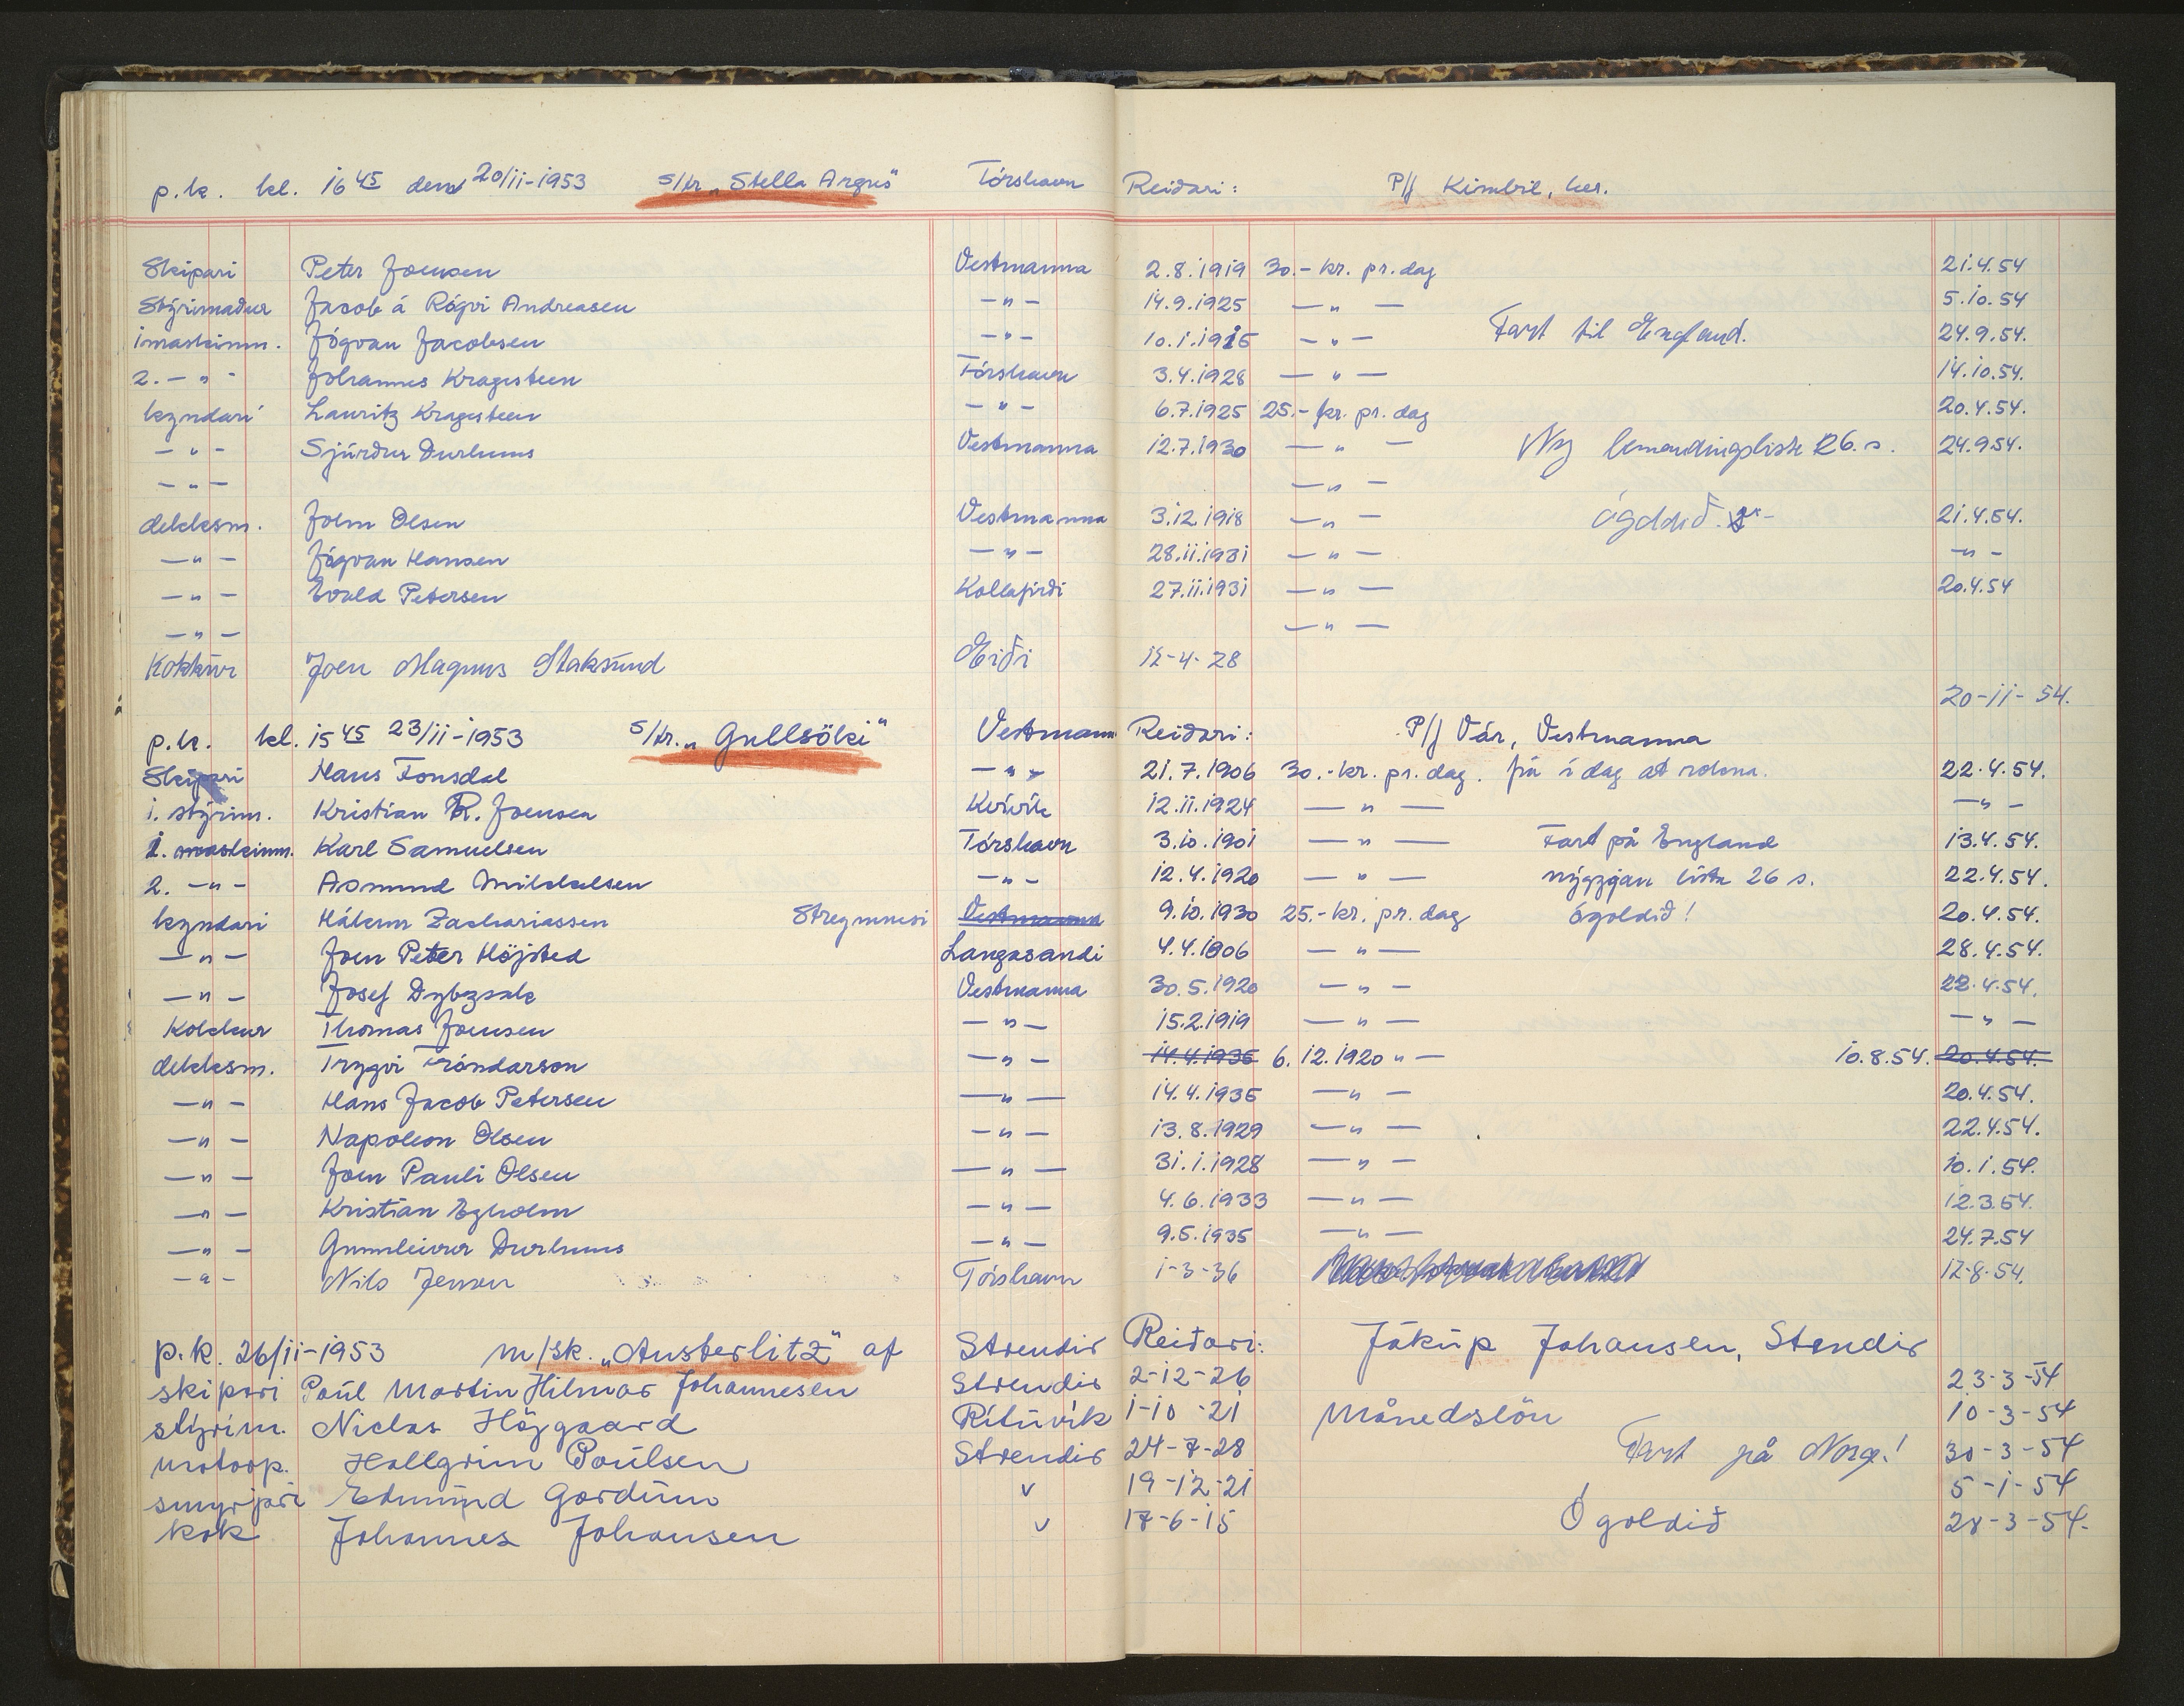 p.k. kl. 16 45 den 20/11-1953 s/tr „Stella Argus" Tórshavn Reiðari: P/f Kimbil, her.
Skipari Peter Joensen Vestmanna 2.8.1919 30.- kr. pr. dag 21.4.54
Stýrimaður Jacob á Rógvi Andreasen — " — 14.9.1925 — " — 5.10.54
1 maskinm. Jógvan Jacobsen — " — 10.1.1915 — " — Fart til England. 24.9.54.
2. — " — Johannes Kragesteen Tórshavn 3.4.1928 — " — 14.10.54.
kyndari Lauritz Kragesteen — " — 6.7.1925 25.- kr. pr. dag 20.4.54.
— " — Sjúrður Durhuus Vestmanna 12.7.1930 — " — Ny bemandingsliste 26. s. 24.9.54.
— " — — " —
dekksm. John Olsen Vestmanna 3.12.1918 — " — ógoldið. 21.4.54.
— " — Jógvan Hansen — " — 28.11.1931 — " — — " —
— " — Evald Petersen Kollafirði 27.11.1931 — " — 20.4.54
— " — — " —
Kokkur Joen Magnus Staksund Eiði 12-4-28
20-11-54.
p.k. kl. 15 45 23/11-1953 s/tr. „Gullsóki" Vestmann Reiðari: P/f Vár, Vestmanna
Skipari Hans Fonsdal — " — 21.7.1906 30.- kr. pr. dag. frá í dag at rokna. 22.4.54.
1. stýrim. Kristian R. Joensen Kvívík 12.11.1924 — " — — " —
1. maskinm. Karl Samuelsen Tórshavn 3.10.1901 — " — Fart på England 13.4.54.
2. — " — Asmund Mikkelsen — " — 12.4.1920 — " — nýggjan lista 26 s. 22.4.54.
kyndari Hákun Zachariassen Streymnesi Vestmanna 9.10.1930 25.- kr. pr. dag ógoldið! 20.4.54.
— " — Joen Peter Höjsted Langasandi 4.4.1906 — " — 28.4.54.
— " — Josef Dybzsak Vestmanna 30.5.1920 — " — 22.4.54.
Kokkur Thomas Joensen — " — 15.2.1919 — " — — " —
dekksm. Trygvi Tróndarson — " — 14.4.1935 6.12.1920 " — 10.8.54. 20.4.54.
— " — Hans Jacob Petersen — " — 14.4.1935 — " — 20.4.54.
— " — Napoleon Olsen — " — 13.8.1929 — " — 22.4.54.
— " — Joen Pauli Olsen — " — 31.1.1928 — " — 10.1.54.
— " — Kristian Egholm — " — 4.6.1933 — " — 12.3.54.
— " — Gunnleivur Durhuus — " — 9.5.1935 — " — 24.7.54
— " — Nils Jensen Tórshavn 1-3-36 12-8-54.
p.k. 26/11-1953 m/sk. „Austerlitz" af Strendir Reiðari: Jákup Johansen, Stendir
skipari Poúl Martin Hilmar Johannesen Strendir 2-12-26 23-3-54
stýrim. Niclas Höjgaard Rituvík 1-10-21 Månedslön 10-3-54
motorp. Hallgrim Poúlsen Strendir 24-7-28 Fart på Norg.! 30-3-54
smyrjari Edmund Gardum v 19-12-21 5-1-54
kok Johannes Johansen v 17-6-15 Ógoldið 28-3-54.